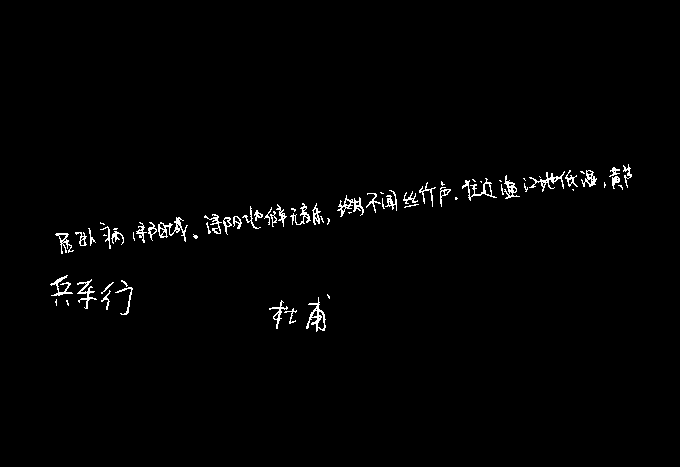 居卧病浔阳城。浔阳地僻无音乐，终岁不闻丝竹声。住近湓江地低湿，黄芦
兵车行
杜甫